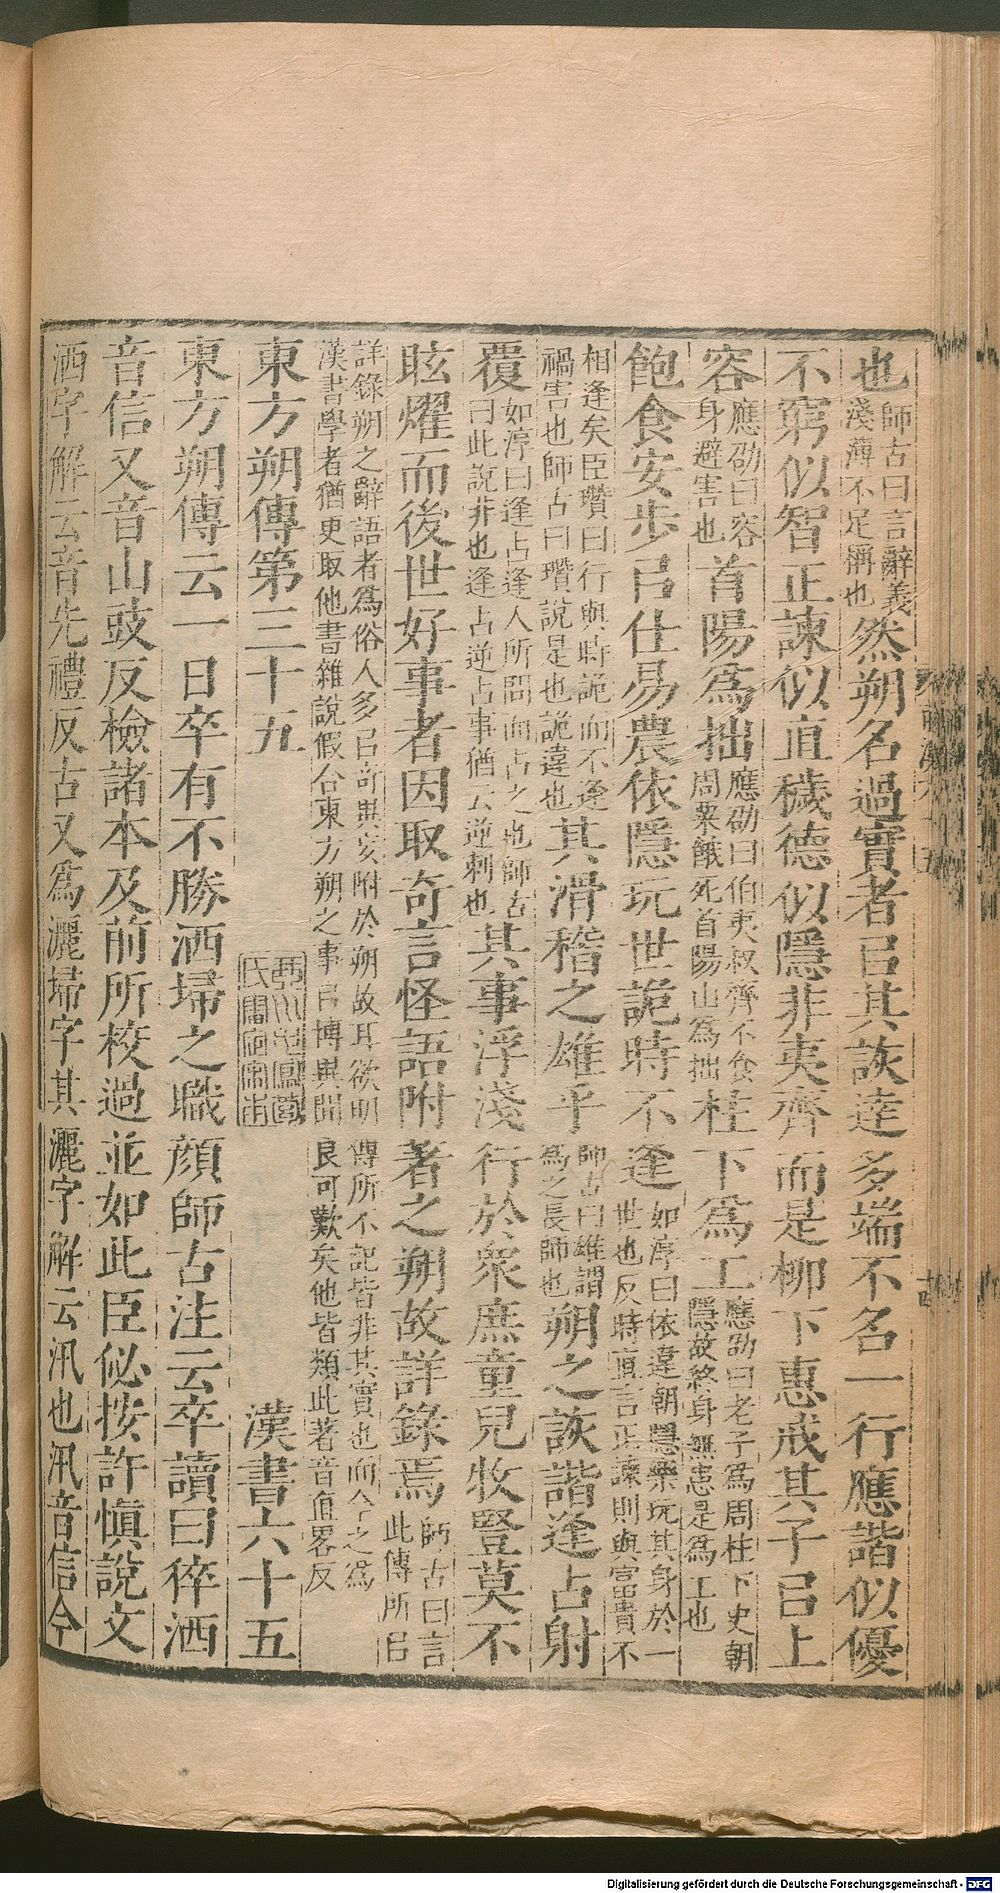 也師古曰言辭義淺薄不足稱也然朔名過實者㠯其詼達多端不名一行應諧似優
不窮似智正諫似直穢德似隱非夷齊而是柳下惠戒其子㠯上
容應劭曰容身避害也首陽爲拙應劭曰伯夷叔齊不食周粟餓死首陽山爲拙柱下爲工應劭曰老子爲周柱下史朝隱故終身無患是爲工也
飽食安步㠯仕易農依隱玩世詭時不逢如淳曰依違朝隱樂玩其身於一世也反時直言正諫則與富貴不
相逢矣臣瓚曰行與時詭而不逢禍害也師古曰瓚說是也詭違也其滑稽之雄乎師古曰雄謂爲之長師也朔之詼諧逢占射
覆如淳曰逢占逢人所問而占之也師古曰此說非也逢占逆占事猶云逆刺也其事浮淺行於衆庶童兒牧豎莫不
眩燿而後世好事者因取奇言怪語附著之朔故詳錄焉師古曰言此傳所㠯
詳錄朔之辭語者爲俗人多㠯奇異妄附於朔故耳欲明傳所不記皆非其實也而今之爲
漢書學者猶更取他書雜說假合東方朔之事㠯博異聞良可歎矣他皆類此著音直畧反
東方朔傳第三十五
漢書六十五
東方朔傳云一日卒有不勝洒埽之職顔師古注云卒讀曰猝洒
音信又音山豉反檢諸本及前所校過並如此臣佖按許慎說文
洒字解云音先禮反古文爲灑埽字其灑字解云汛也汛音信今
Digitalisierung gefördert durch die Deutsche Forschungsgemeinschaft - DFG